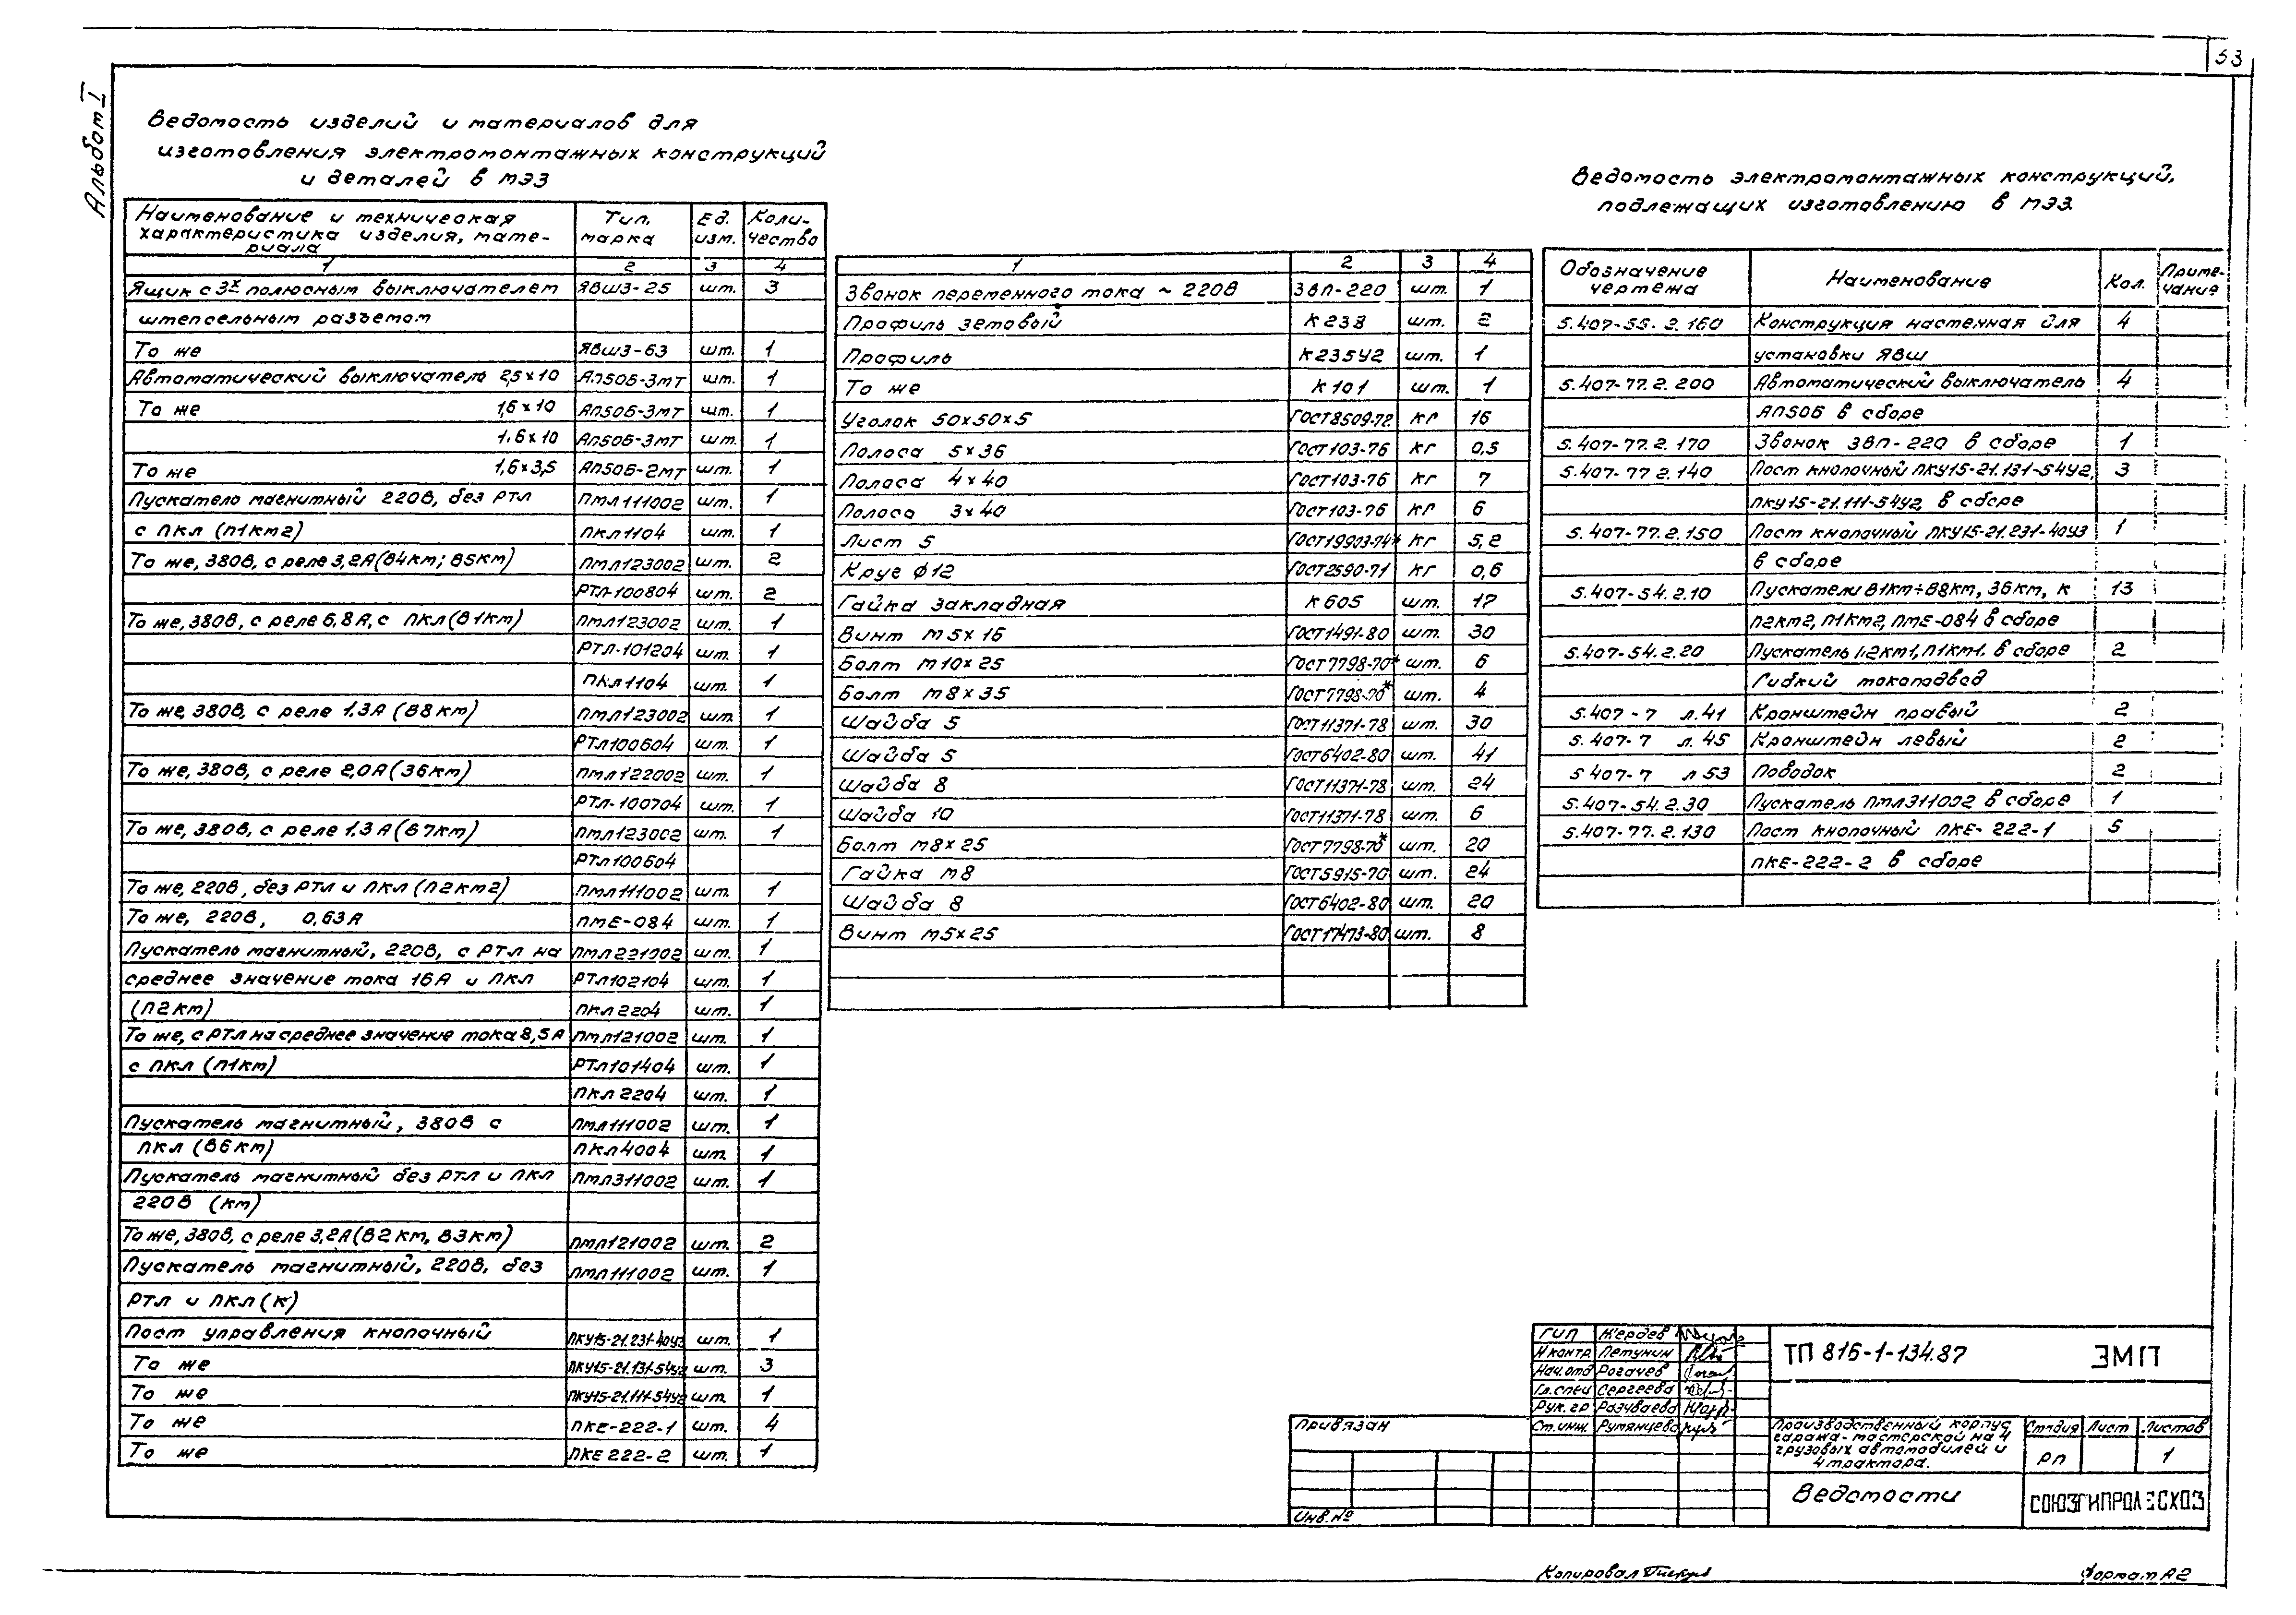 53
Альбом I
Ведомость изделий и материалов для
изготовления электромонтажных конструкций
и деталей в МЭЗ
Наименование и техническая характеристика изделия, материала | Тип, марка | Ед. изм. | Количество
1 | 2 | 3 | 4
Ящик с 3х полюсным выключателем | ЯВШ3-25 | шт. | 3
штепсельным разъемом
То же | ЯВШ3-63 | шт. | 1
Автоматический выключатель 2,5×10 | АП50Б-3МТ | шт. | 1
То же 1,6×10 | АП50Б-3МТ | шт. | 1
1,6×10 | АП50Б-3МТ | шт. | 1
То же 1,6×3,5 | АП50Б-2МТ | шт. | 1
Пускатель магнитный 220В, без РТЛ | ПМЛ111002 | шт. | 1
с ПКЛ (П1КМ2) | ПКЛ1104 | шт. | 1
То же, 380В, с реле 3,2А (В4КМ; В5КМ) | ПМЛ123002 | шт. | 2
РТЛ-100804 | шт. | 2
То же, 380В, с реле 6,8А, с ПКЛ (В1КМ) | ПМЛ123002 | шт. | 1
РТЛ-101204 | шт. | 1
ПКЛ1104 | шт. | 1
То же, 380В, с реле 1,3А (В8КМ) | ПМЛ123002 | шт. | 1
РТЛ100604 | шт. | 1
То же, 380В, с реле 2,0А (36КМ) | ПМЛ122002 | шт. | 1
РТЛ-100704 | шт. | 1
То же, 380В, с реле 1,3А (В7КМ) | ПМЛ123002 | шт. | 1
РТЛ100604
То же, 220В, без РТЛ и ПКЛ (П2КМ2) | ПМЛ111002 | шт. | 1
То же, 220В, 0,63А | ПМЕ-084 | шт. | 1
Пускатель магнитный, 220В, с РТЛ на | ПМЛ221002 | шт. | 1
среднее значение тока 16А и ПКЛ | РТЛ102104 | шт. | 1
(П2КМ) | ПКЛ2204 | шт. | 1
То же, с РТЛ на среднее значение тока 8,5А | ПМЛ121002 | шт. | 1
с ПКЛ (П1КМ) | РТЛ101404 | шт. | 1
ПКЛ2204 | шт. | 1
Пускатель магнитный, 380В с | ПМЛ111002 | шт. | 1
ПКЛ (В6КМ) | ПКЛ4004 | шт. | 1
Пускатель магнитный без РТЛ и ПКЛ | ПМЛ311002 | шт. | 1
220В (КМ)
То же, 380В, с реле 3,2А (В2КМ, В3КМ) | ПМЛ121002 | шт. | 2
Пускатель магнитный, 220В, без | ПМЛ111002 | шт. | 1
РТЛ и ПКЛ (К)
Пост управления кнопочный | ПКУ15-21.231-40У3 | шт. | 1
То же | ПКУ15-21.131-54У2 | шт. | 3
То же | ПКУ15-21.111-54У2 | шт. | 1
То же | ПКЕ-222-1 | шт. | 4
То же | ПКЕ 222-2 | шт. | 1
1 | 2 | 3 | 4
Звонок переменного тока ~ 220В | ЗВП-220 | шт. | 1
Профиль зетовый | К238 | шт. | 2
Профиль | К235У2 | шт. | 1
То же | К101 | шт. | 1
Уголок 50×50×5 | ГОСТ8509-72 | кг | 16
Полоса 5×36 | ГОСТ103-76 | кг | 0,5
Полоса 4×40 | ГОСТ103-76 | кг | 7
Полоса 3×40 | ГОСТ103-76 | кг | 6
Лист 5 | ГОСТ19903-74* | кг | 5,2
Круг ф12 | ГОСТ2590-71 | кг | 0,6
Гайка закладная | К605 | шт. | 17
Винт М5×16 | ГОСТ1491-80 | шт. | 30
Болт М10×25 | ГОСТ7798-70* | шт. | 6
Болт М8×35 | ГОСТ7798-70* | шт. | 4
Шайба 5 | ГОСТ11371-78 | шт. | 30
Шайба 5 | ГОСТ6402-80 | шт. | 41
Шайба 8 | ГОСТ11371-78 | шт. | 24
Шайба 10 | ГОСТ11371-78 | шт. | 6
Болт М8×25 | ГОСТ7798-70* | шт. | 20
Гайка М8 | ГОСТ5915-70 | шт. | 24
Шайба 8 | ГОСТ6402-80 | шт. | 20
Винт М5×25 | ГОСТ17473-80 | шт. | 8
Ведомость электромонтажных конструкций,
подлежащих изготовлению в МЭЗ
Обозначение чертежа | Наименование | Кол. | Примечание
5.407-55.2.160 | Конструкция настенная для | 4
установки ЯВШ
5.407-77.2.200 | Автоматический выключатель | 4
АП50Б в сборе
5.407-77.2.170 | Звонок ЗВП-220 в сборе | 1
5.407-77 2.140 | Пост кнопочный ПКУ15-21.131-54У2, | 3
ПКУ15-21.111-54У2, в сборе
5.407-77.2.150 | Пост кнопочный ПКУ15-21.231-40У3 | 1
в сборе
5.407-54.2.10 | Пускатели В1КМ÷В8КМ, 36КМ, К | 13
П2КМ2, П1КМ2, ПМЕ-084 в сборе
5.407-54.2.20 | Пускатель П2КМ1, П1КМ1. в сборе | 2
Гибкий токоподвод
5.407-7 л.41 | Кронштейн правый | 2
5.407-7 л.45 | Кронштейн левый | 2
5 407-7 л 53 | Поводок | 2
5.407-54.2.30 | Пускатель ПМЛ311002 в сборе | 1
5.407-77.2.130 | Пост кнопочный ПКЕ-222-1 | 5
ПКЕ-222-2 в сборе
ГИП Жердев
Н контр. Петунин
Нач.отд Рогачев
Гл.спец Сергеева
Рук.гр Разуваева
Ст.инж. Румянцева
ТП 816-1-134.87 ЭМП
Производственный корпус
гаража-мастерской на 4
грузовых автомобилей и
4 трактора.
Стадия Лист Листов
РП 1
Ведомости
СОЮЗГИПРОЛЕСХОЗ
Привязан
Инв.№
Копировал
Формат А2